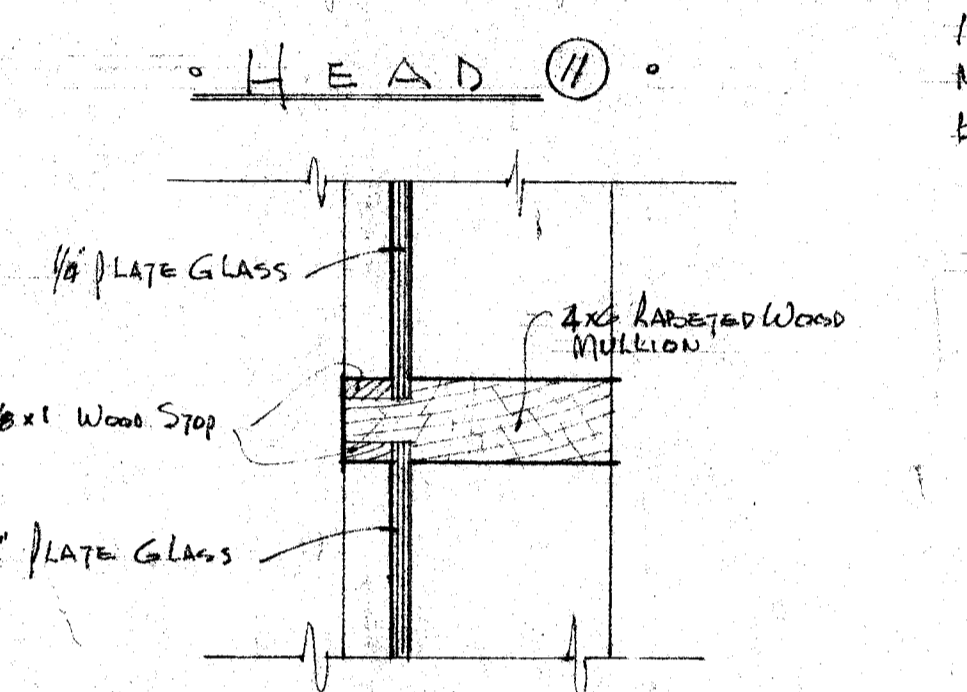 • HEAD 11 •
1/4" PLATE GLASS
4x6 RABETED WOOD
MULLION
8 x 1 WOOD STOP
" PLATE GLASS